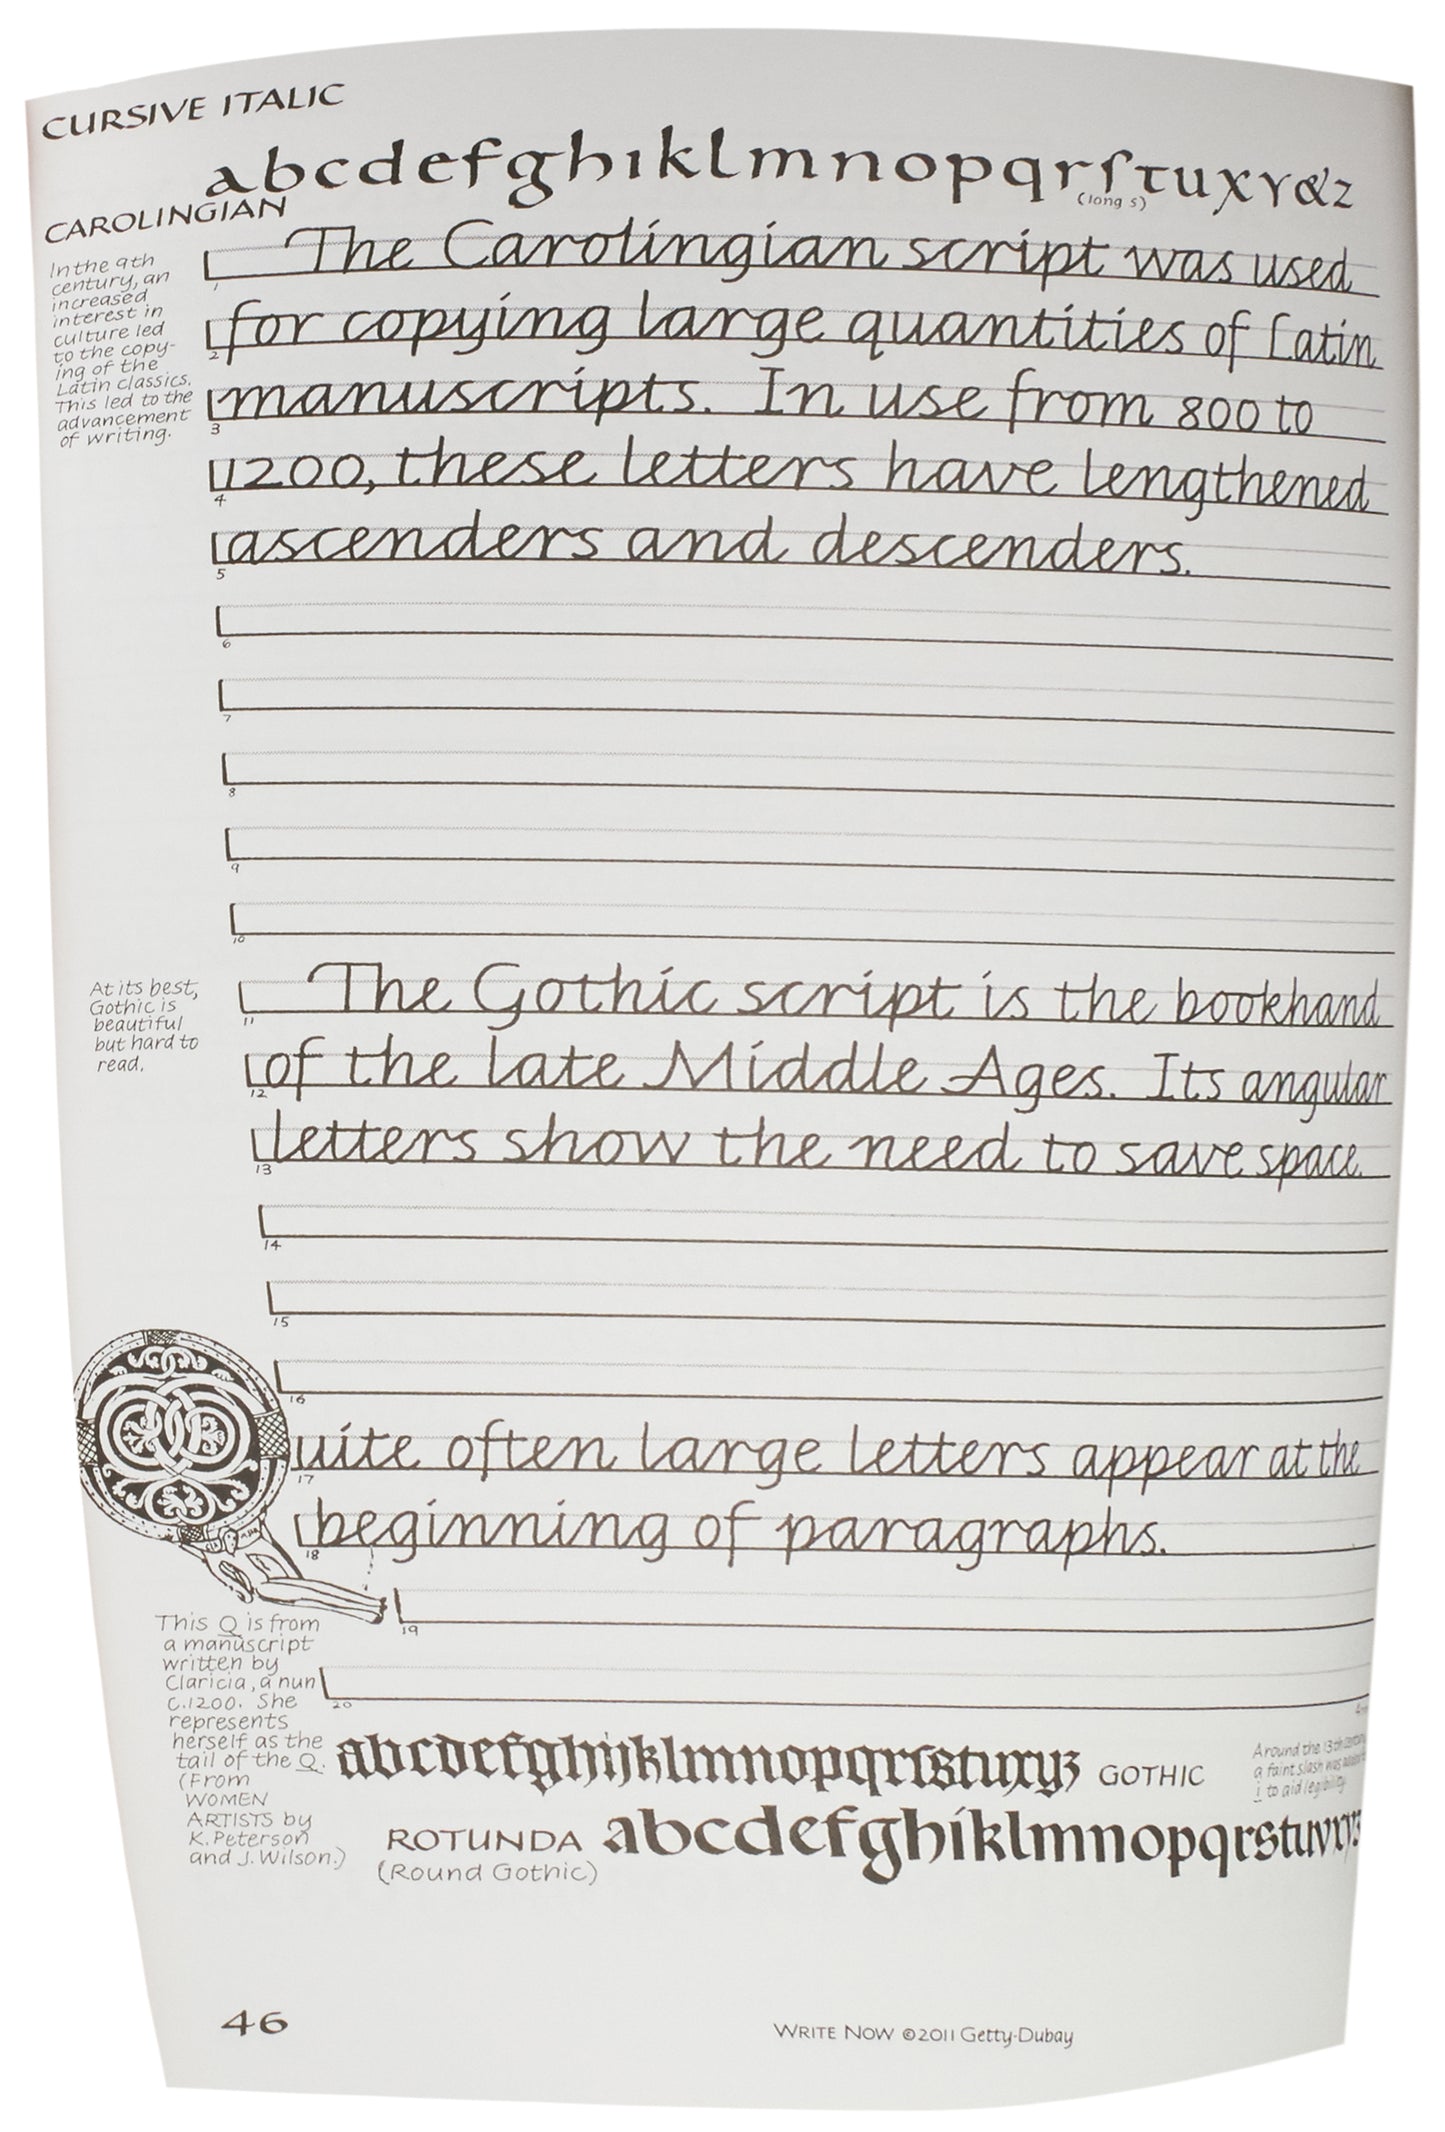 CURSIVE ITALIC
abcdefghıklmnopqrſτuxyz
(long s)
CAROLINGIAN
In the 9th
century, an
increased
interest in
culture led
to the copy-
ing of the
Latin classics.
This led to the
advancement
of writing.
1 The Carolingian script was used
2 for copying large quantities of Latin
3 manuscripts. In use from 800 to
4 1200, these letters have lengthened
5 ascenders and descenders.
6
7
8
9
10
At its best,
Gothic is
beautiful
but hard to
read.
11 The Gothic script is the bookhand
12 of the late Middle Ages. Its angular
13 letters show the need to save space.
14
15
16
Quite often large letters appear at the
17
18 beginning of paragraphs.
19
20
This Q is from
a manuscript
written by
Claricia, a nun
c.1200. She
represents
herself as the
tail of the Q.
(From
WOMEN
ARTISTS by
K. Peterson
and J. Wilson.)
abcdefghijklmnopqrſstuxyz GOTHIC
Around the 13th century
a faint slash was
i to aid legibility
ROTUNDA abcdefghíklmnopqrstuvxyz
(Round Gothic)
46
WRITE NOW ©2011 Getty-Dubay